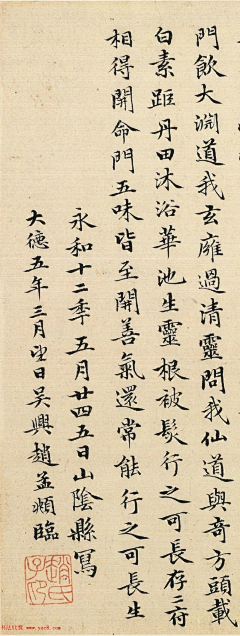 門飲大渊道我玄廱過清靈問我仙道與奇方頭載
白素距丹田沐浴華池生靈根被髮行之可長存二府
相得開命門五味皆至開善氣還常能行之可長生
永和十二季五月廿四五日山陰縣寫
大德五年三月望日吳興趙孟頫臨
趙氏子昂